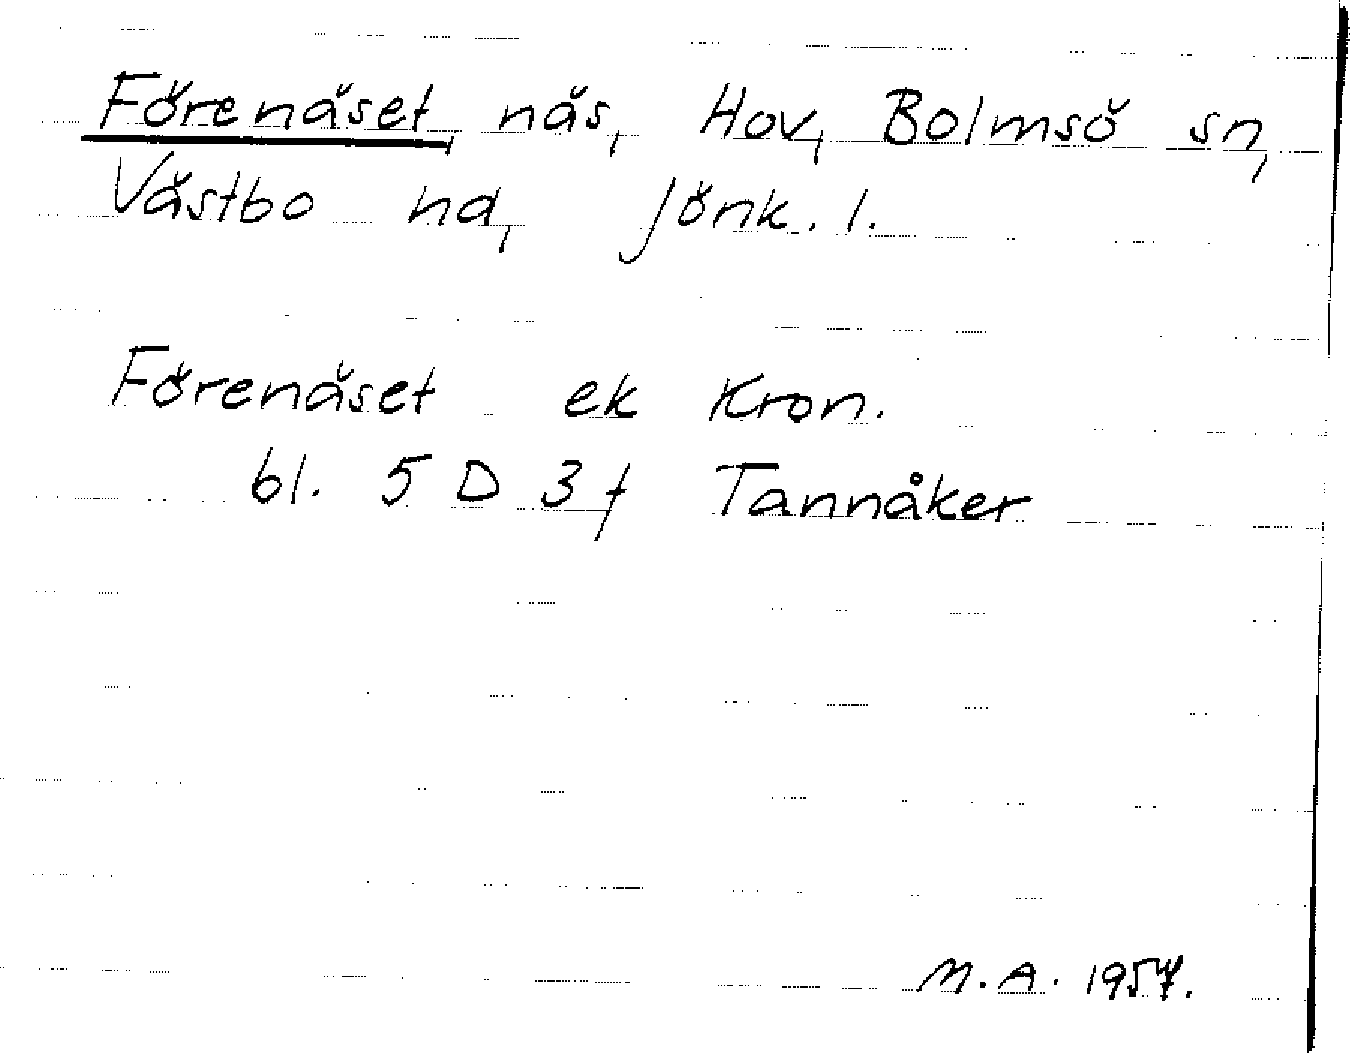 Förenäset, näs, Hov, Bolmsö sn,
Västbo hd, Jönk. l.
Förenäset ek Kron.
bl. 5 D 3 f Tannåker
M.A. 1957.